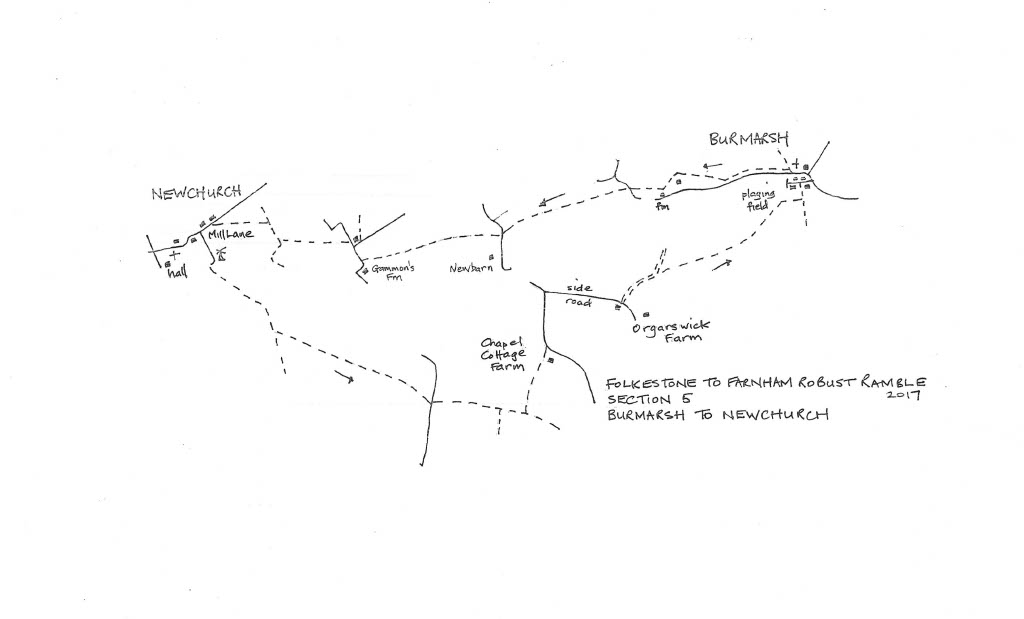 BURMARSH
NEWCHURCH
playing
field
fm
Mill Lane
hall
Gammon's
Fm
Newbarn
side
road
Orgarswick
Farm
Chapel
Cottage
Farm
FOLKESTONE TO FARNHAM ROBUST RAMBLE
2017
SECTION 5
BURMARSH TO NEWCHURCH